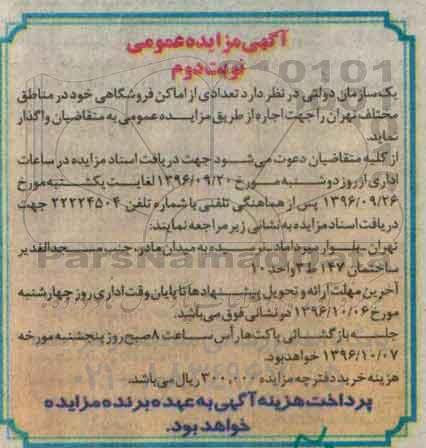 آگهی مزایده عمومی
نوبت دوم
یک سازمان دولتی در نظر دارد تعدادی از اماکن فروشگاهی خود در مناطق
مختلف تهران را جهت اجاره از طریق مزایده عمومی به متقاضیان واگذار
نماید.
از کلیه متقاضیان دعوت می‌شود جهت دریافت اسناد مزایده در ساعات
اداری از روز دوشنبه مورخ ۱۳۹۶/۰۹/۲۰ لغایت یکشنبه مورخ
۱۳۹۶/۰۹/۲۶ پس از هماهنگی تلفنی با شماره تلفن ۲۲۲۲۴۵۰۴ جهت
دریافت اسناد مزایده به نشانی زیر مراجعه نمایند:
تهران - بلوار میرداماد - نرسیده به میدان مادر، جنب مسجد الغدیر
ساختمان ۱۴۷ ط ۳ واحد ۱۰
آخرین مهلت ارائه و تحویل پیشنهادها تا پایان وقت اداری روز چهارشنبه
مورخ ۱۳۹۶/۱۰/۰۶ در نشانی فوق می‌باشد.
جلسه بازگشائی پاکت‌ها رأس ساعت ۸ صبح روز پنجشنبه مورخه
۱۳۹۶/۱۰/۰۷ خواهد بود.
هزینه خرید دفترچه مزایده ۳۰۰,۰۰۰ ریال می‌باشد.
پرداخت هزینه آگهی به عهده برنده مزایده
خواهد بود.
ParsNamadData